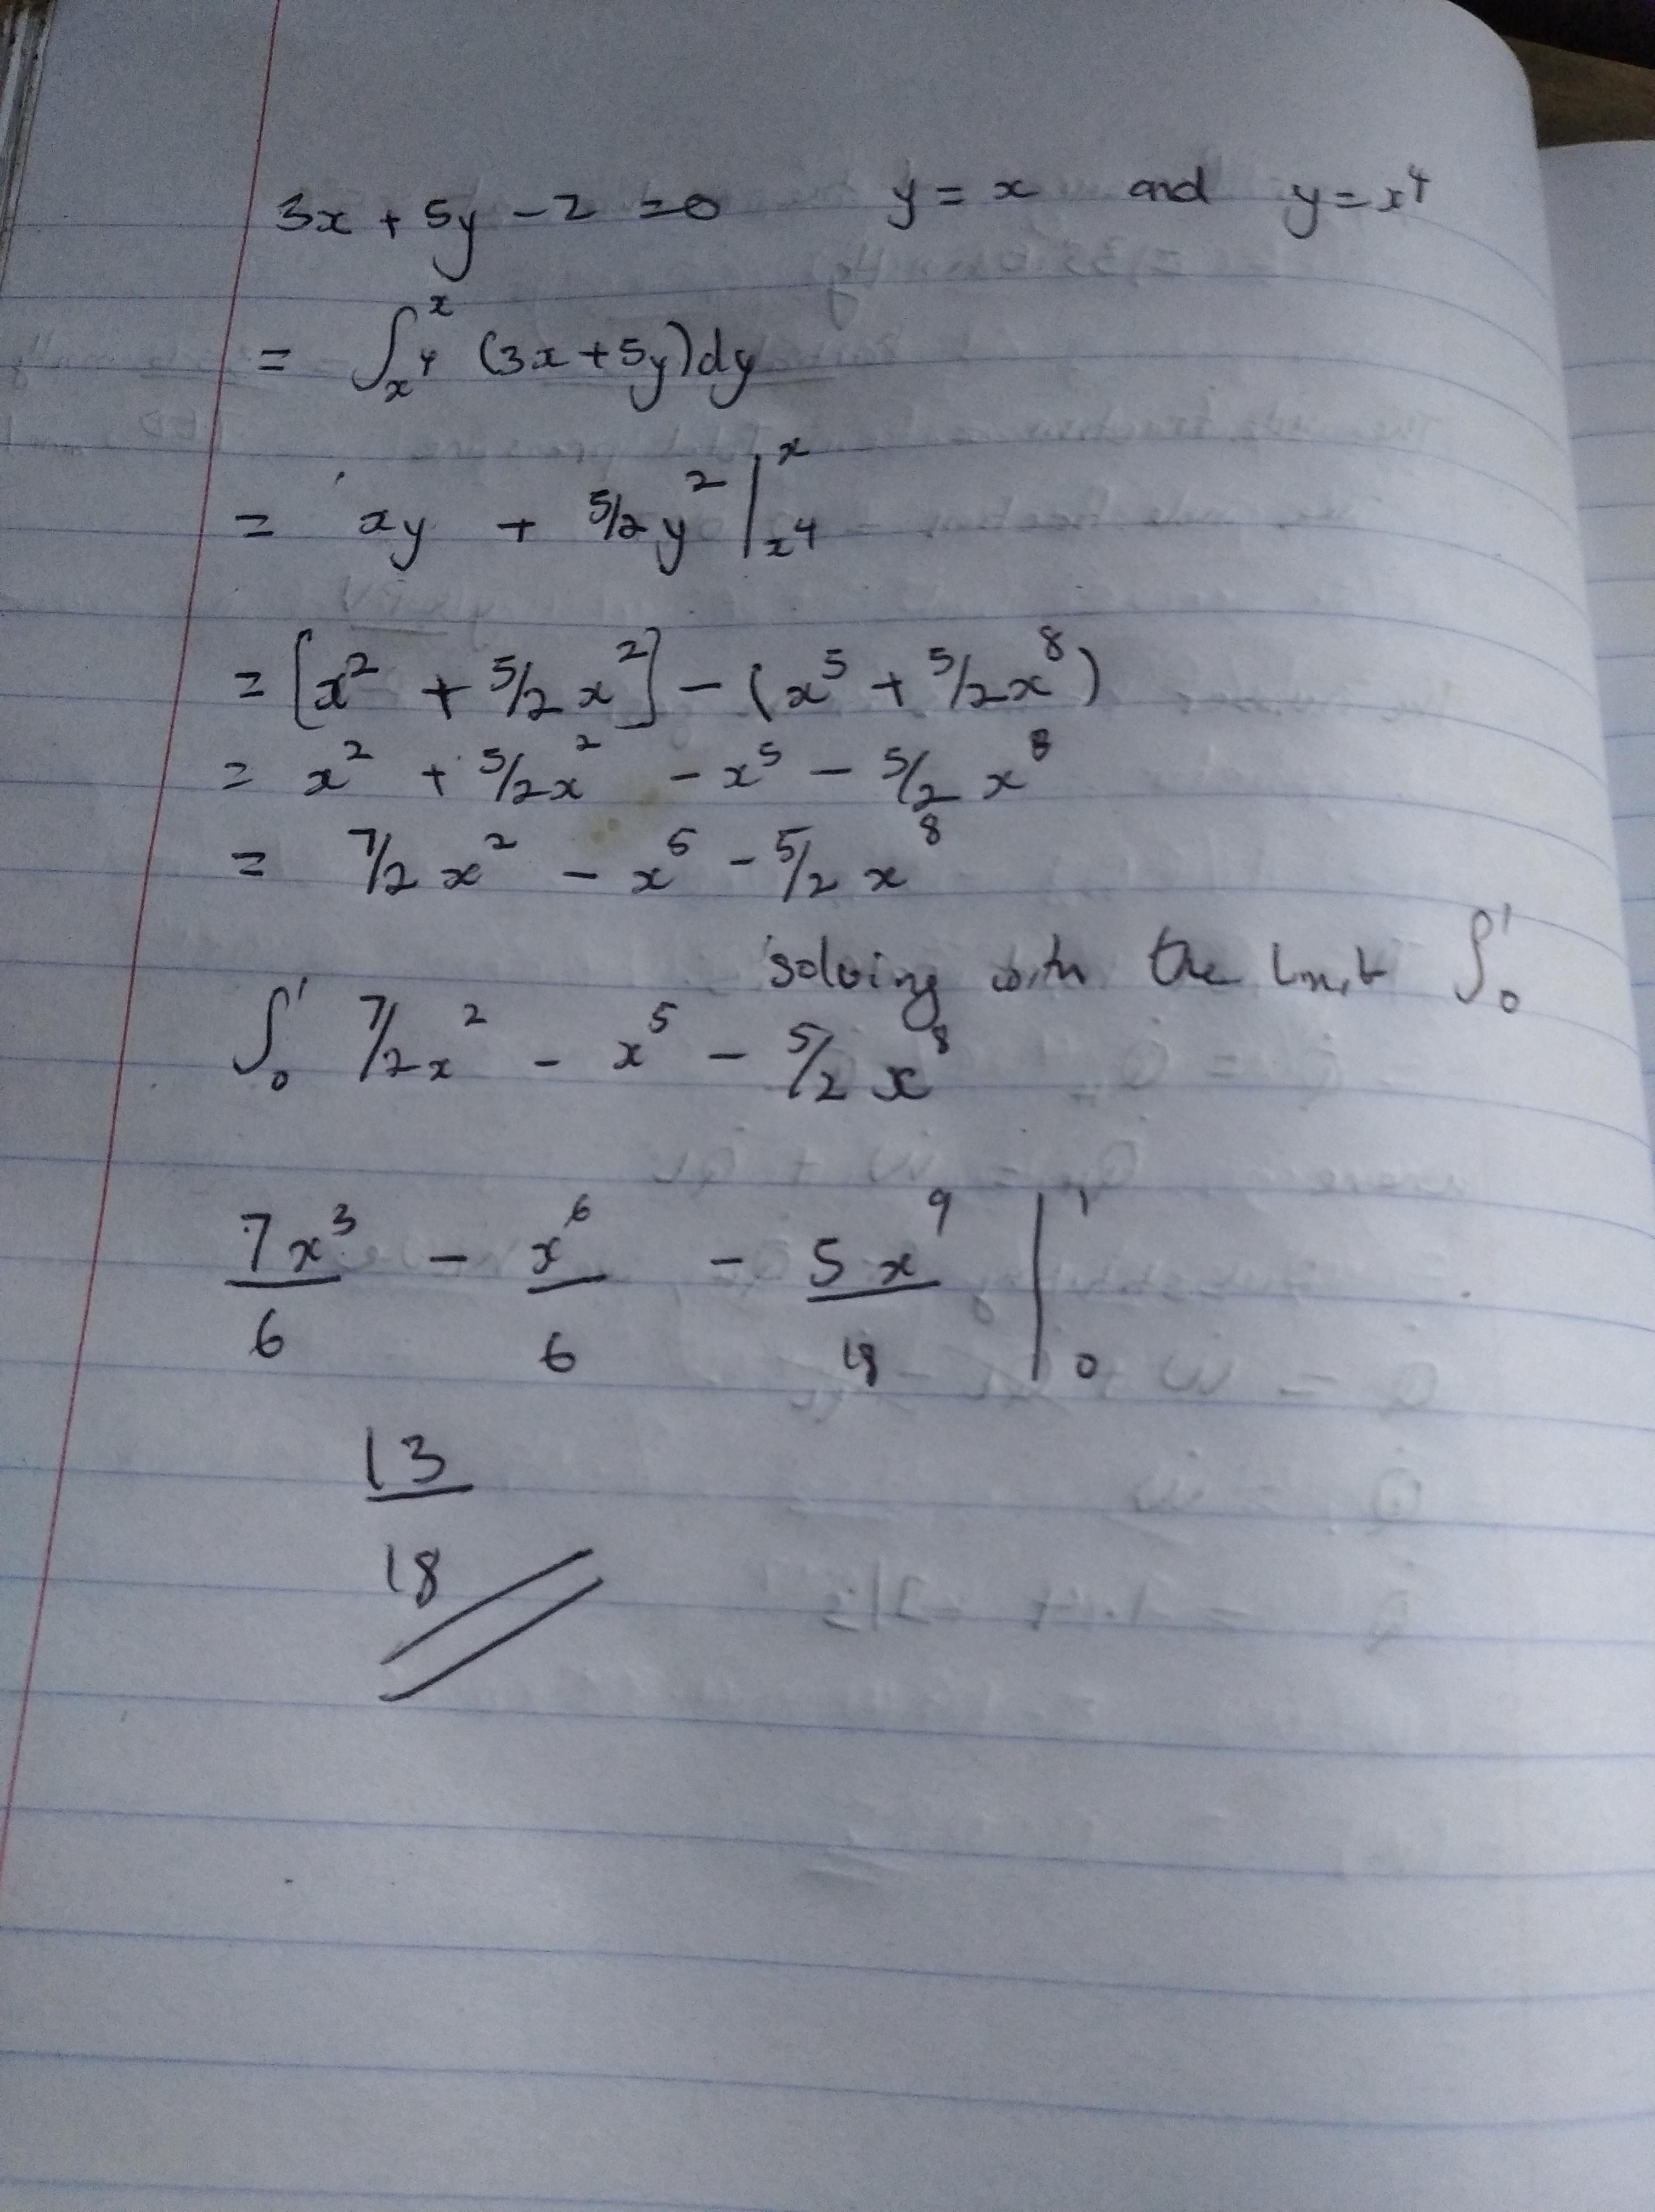 3x + 5y - 2 = 0 y = x and y = x⁴
= ∫ₓ⁴ˣ (3x + 5y) dy
= xy + 5/2 y² |ˣₓ⁴
= [x² + 5/2 x²] - (x⁵ + 5/2 x⁸)
= x² + 5/2 x² - x⁵ - 5/2 x⁸
= 7/2 x² - x⁵ - 5/2 x⁸
solving with the limit ∫₀¹
∫₀¹ 7/2 x² - x⁵ - 5/2 x⁸
7x³/6 - x⁶/6 - 5x⁹/18 |₀¹
13/18